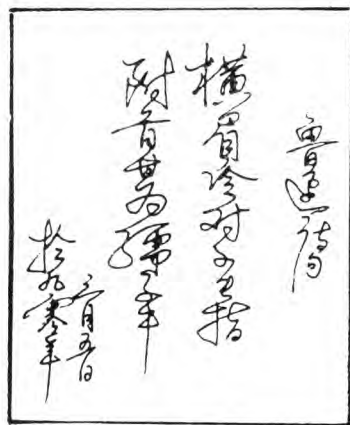 鲁迅诗句
横眉冷对千夫指
俯首甘为孺子牛
月五日
九零年